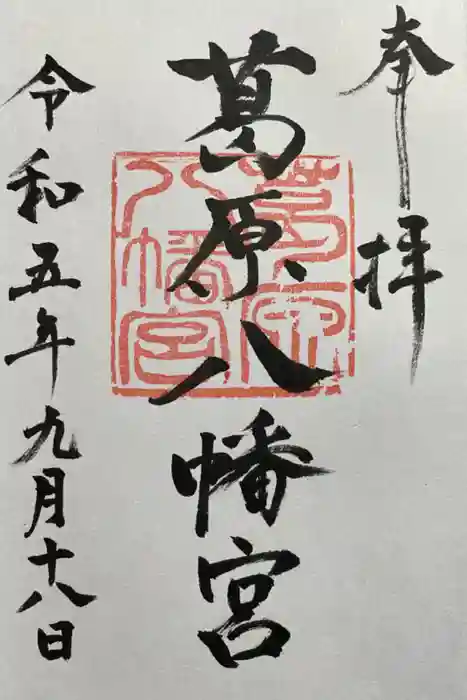 奉拝
葛原八幡宮
葛原八幡宮
令和五年九月十八日